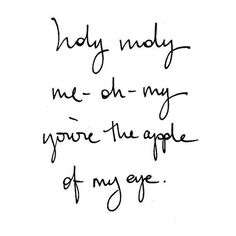 holy moly
me-oh-my
you're the apple
of my eye.